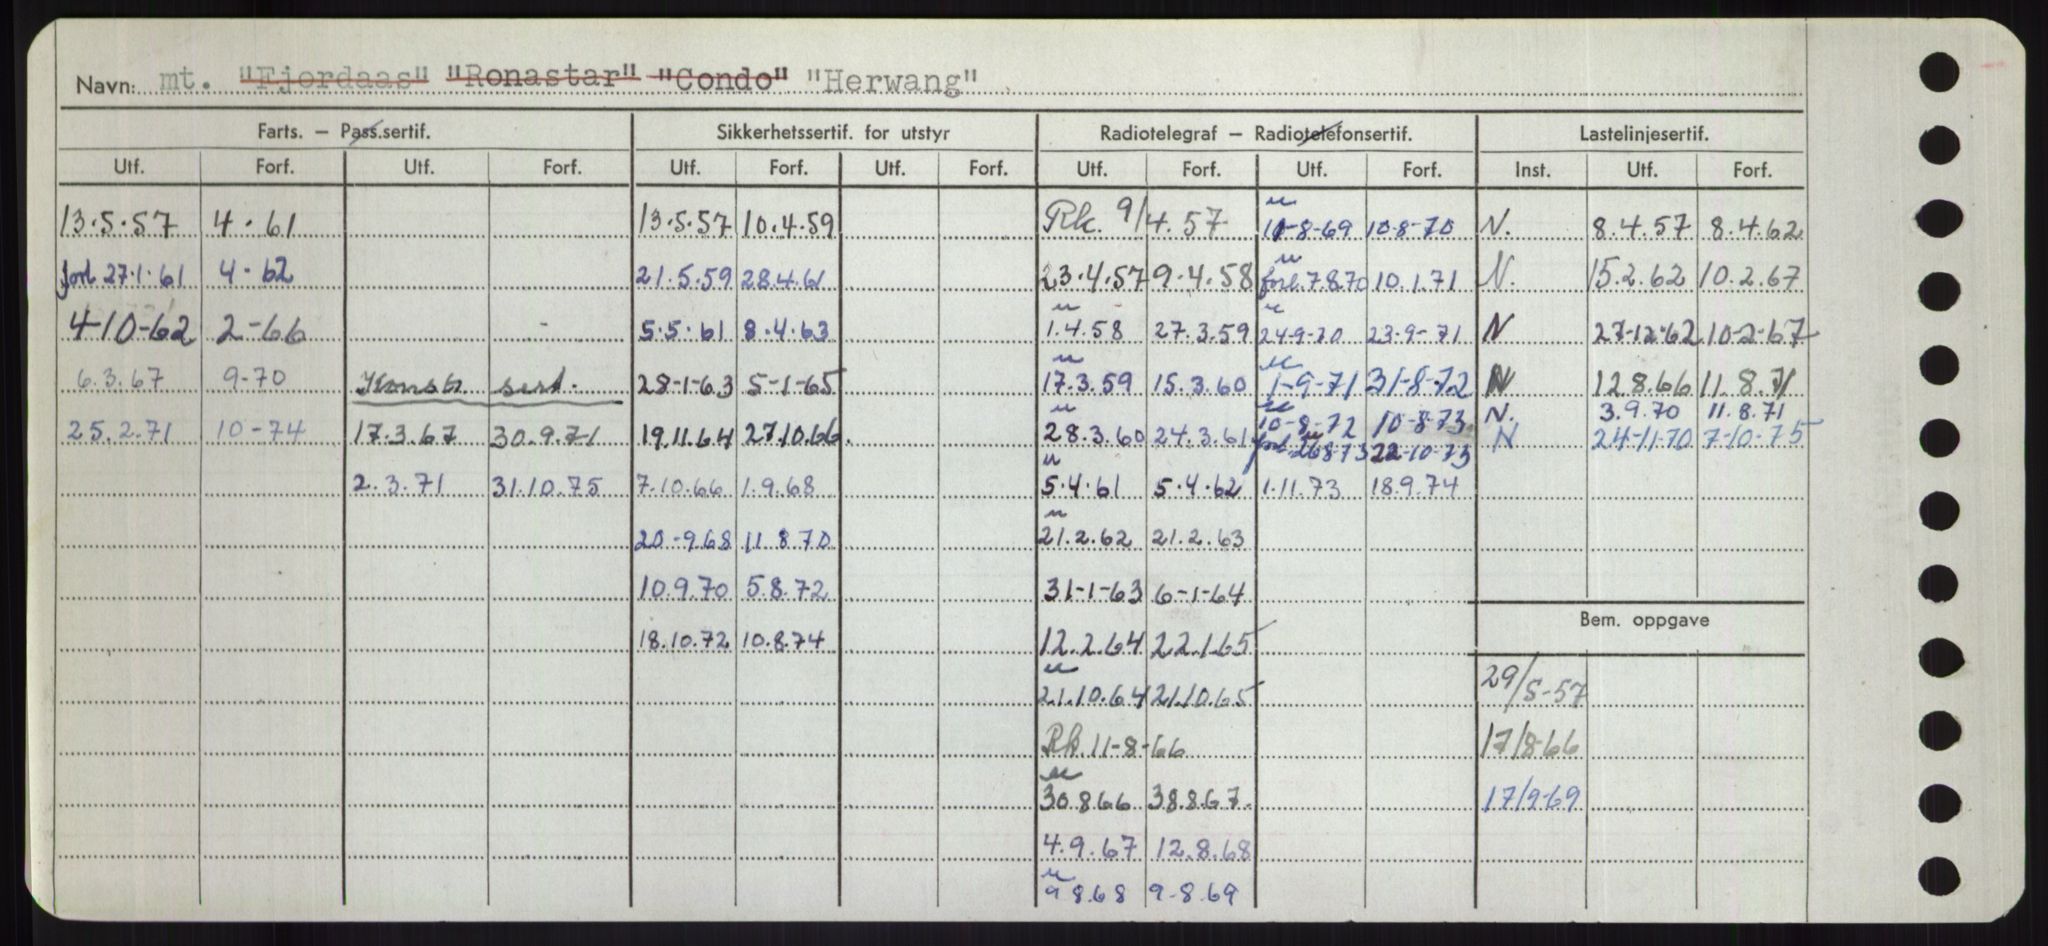 Navn: mt. "Fjordaas" "Ronastar" "Condo" "Herwang"
Farts. — Pass.sertif. Sikkerhetssertif. for utstyr Radiotelegraf — Radiotelefonsertif. Lastelinjesertif.
Utf. Forf. Utf. Forf. Utf. Forf. Utf. Forf. Utf. Forf. Utf. Forf. Inst. Utf. Forf.
13.5.57 4.61 13.5.57 10.4.59 Rk. 9/4.57 11-8-69 10-8-70 N. 8.4.57 8.4.62
forl 27.1.61 4.62 21.5.59 28.4.61 23.4.57 9.4.58 forl. 7.8.70 10.1.71 N. 15.2.62 10.2.67
4-10-62 2-66 5.5.61 8.4.63 1.4.58 27.3.59 24-9-70 23-9-71 N 27-12-62 10-2-67
6.3.67 9-70 Konstr. sert. 28-1-63 5-1-65 17.3.59 15.3.60 1-9-71 31-8-72 N 12.8.66 11.8.71
10-8-72 10-8-73 N. 3.9.70 11.8.71
25.2.71 10-74 17.3.67 30.9.71 19.11.64 27.10.66. 28.3.60 24.3.61 forl. 26873 22-10-73 N 24-11-70 7-10-75
2.3.71 31.10.75 7.10.66 1.9.68 5.4.61 5.4.62 1.11.73 18.9.74
20-9.68 11.8.70 21.2.62 21.2.63
10.9.70 5.8.72 31-1-63 6-1-64
Bem. oppgave
18.10.72 10.8.74 12.2.64 22.1.65
21.10.64 21.10.65 29/5-57
Rk. 11-8-66 17/8-66
30.8.66 38.8.67. 17/9-69
4.9.67 12.8.68
9.8.68 9-8.69